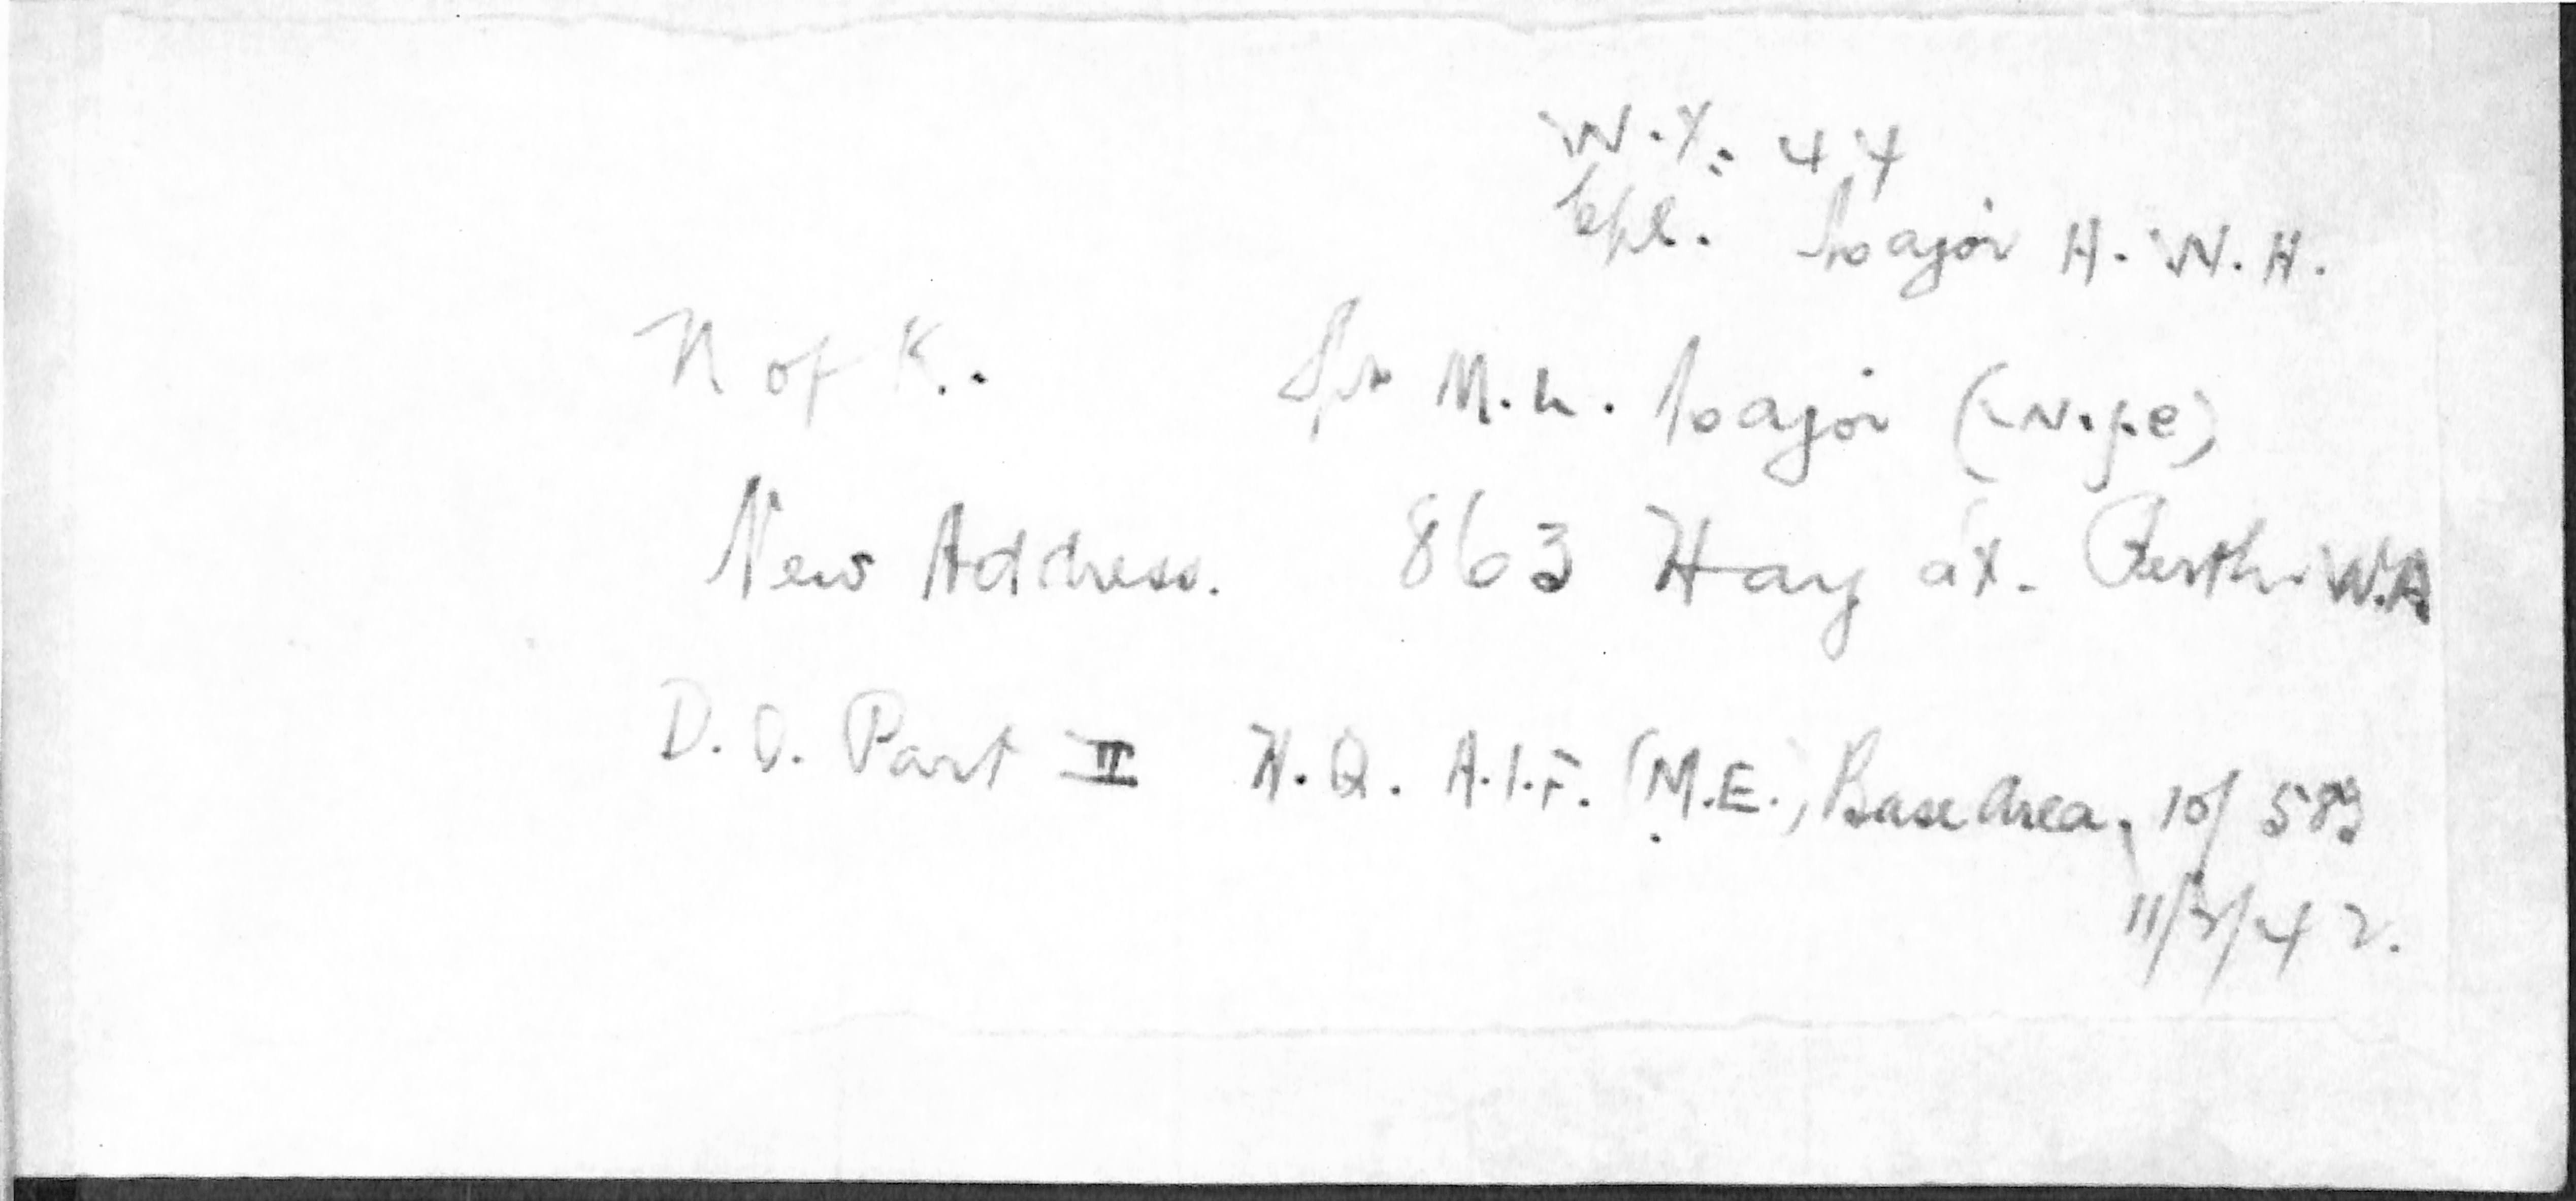 W.X. 44
Cpl. Major H. W. H.
N of K.. M. L. Major (Wife)
New Address. 863 Hay St. Perth. W.A
D. O. Part II H.Q. A.I.F. (M.E.) Base Area, 10/ 583
11/3/42.